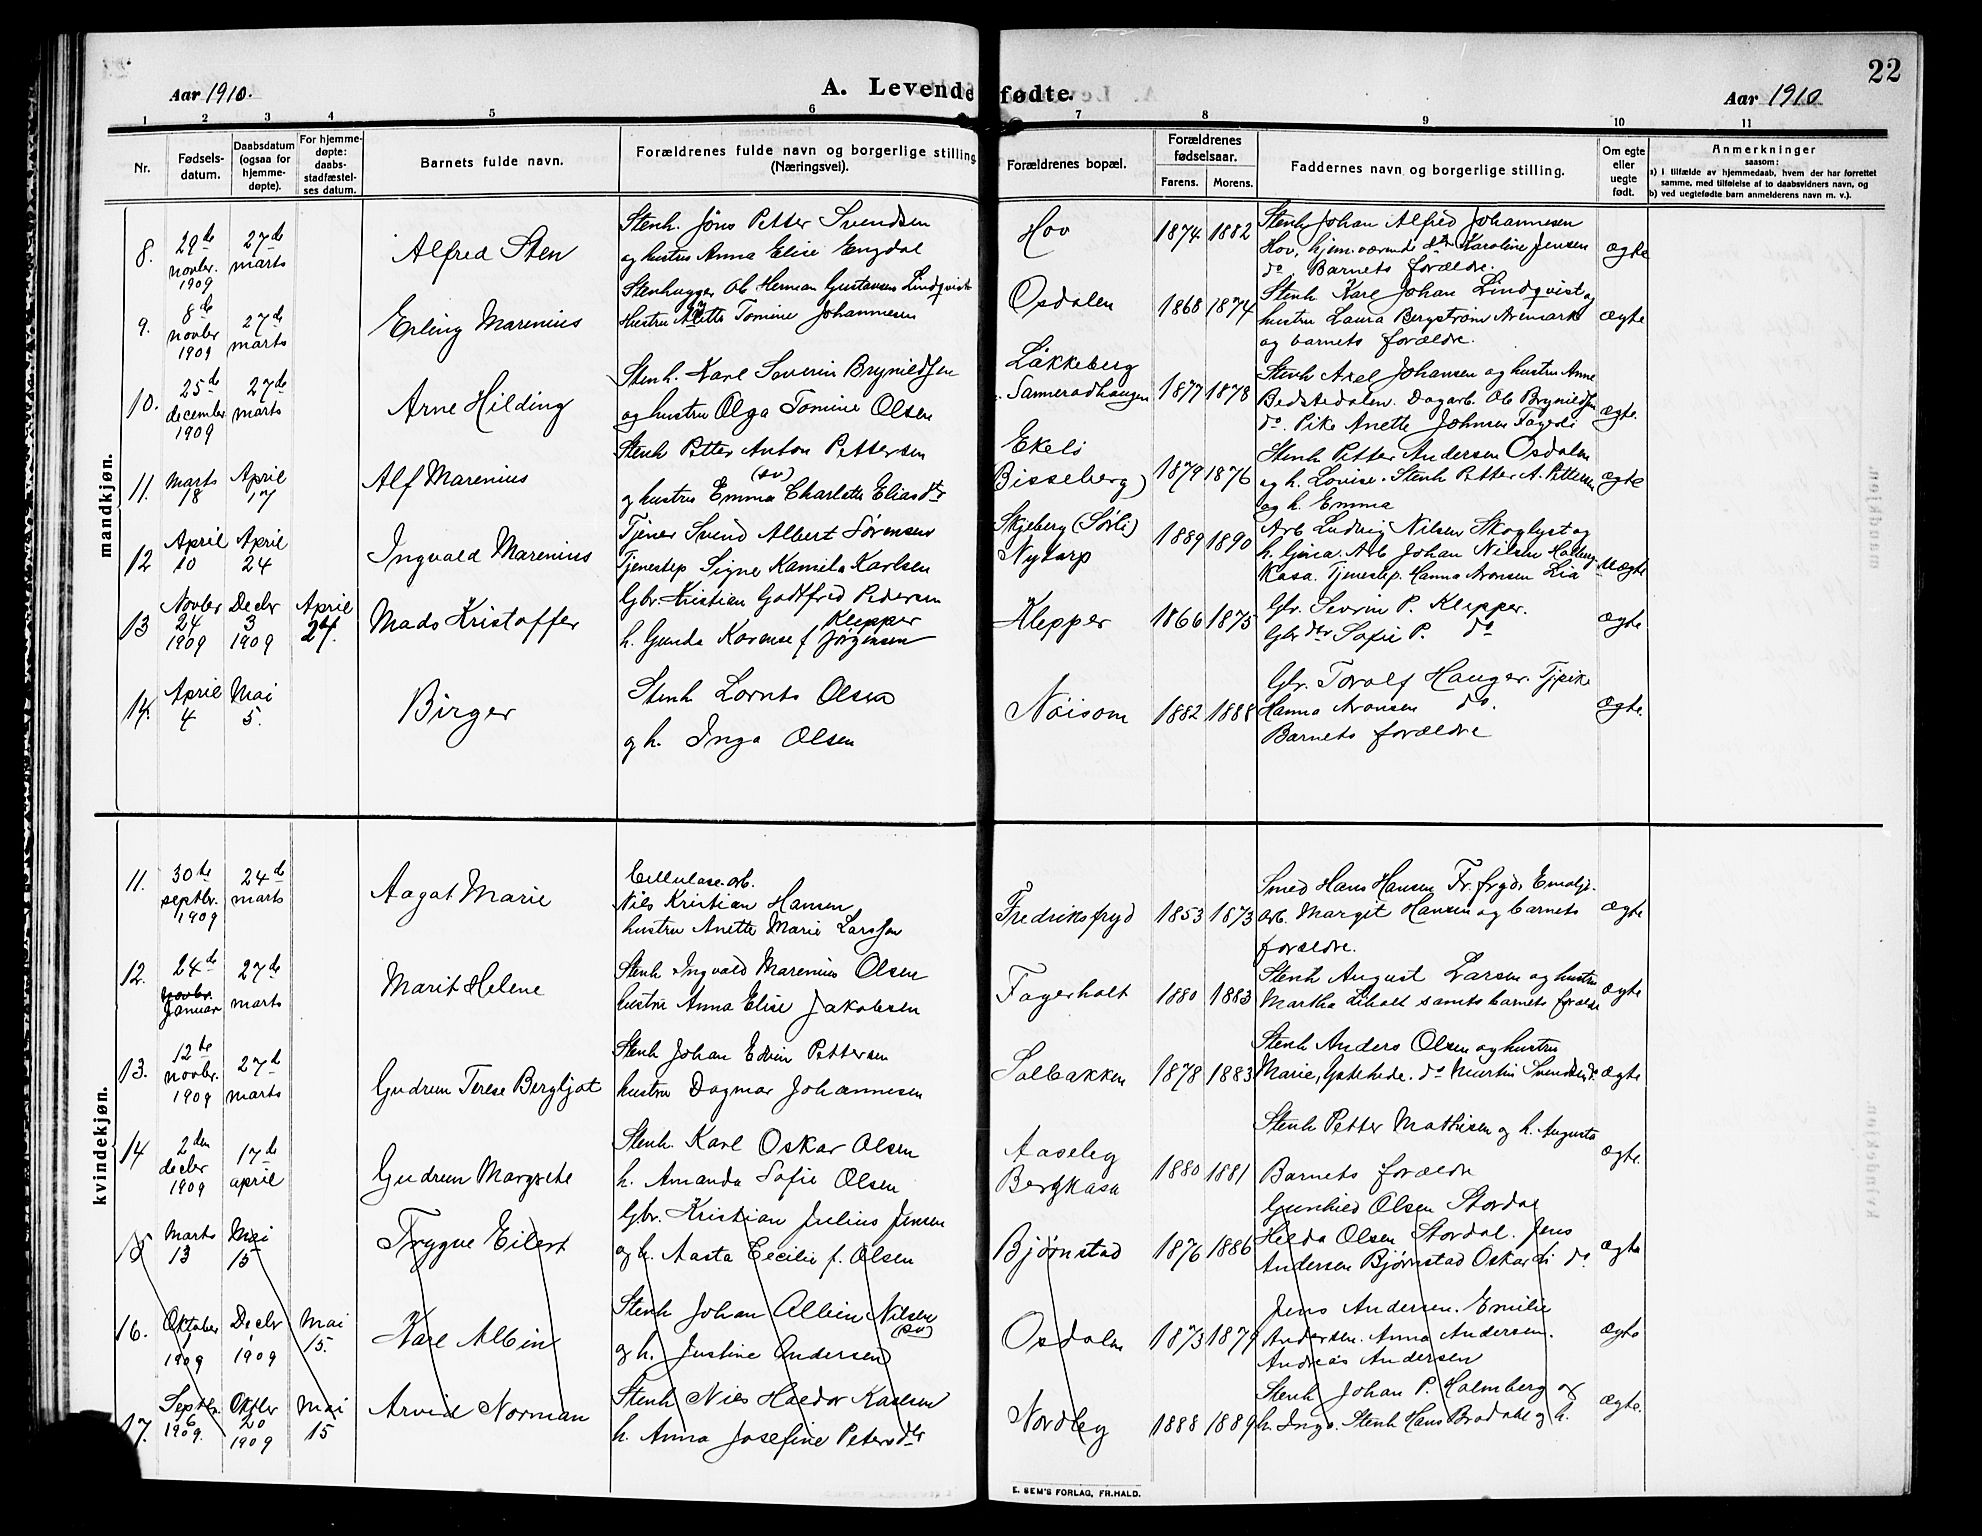 22
Aar 1910.
A. Levendefødte.
Aar 1910
1 2 3 4 5 6 7 8 9 10 11
Nr.
Fødselsdatum.
Daabsdatum (ogsaa for hjemmedøpte).
For hjemmedøpte: daabsstadfæstelses datum.
Barnets fulde navn.
Forældrenes fulde navn og borgerlige stilling (Næringsvei).
Forældrenes bopæl.
Forældrenes fødselsaar.
Farens. Morens.
Faddernes navn og borgerlige stilling.
Om egte eller uegte født.
Anmerkninger
saasom:
a) i tilfælde av hjemmedaab, hvem der har forrettet samme, med tilføielse af to daabsvidners navn, og
b) ved uegtefødte barn anmelderens navn m. v.).
mandkjøn.
8. 29de novbr. 1909 27de marts Alfred Sten
Stenh. Jøns Petter Svendsen
og hustru Anna Elise Engdal
Hov 1874 1882
Stenh Johan Alfred Johannesen
Hov, hjem.værende dtr Karoline Jensen
do. Barnets forældre.
ægte
9. 8de novbr 1909 27de marts Erling Marenius
Stenhugger Ob Herman Gustavsen Lindqvist
Hustru Anette Tomine Johannesen
Osdalen 1868 1874
Stenh Karl Johan Lindqvist og
hustru Laura Bergstrøm Aremark
og barnets forældre.
ægte
10. 25de december 1909 27de marts Arne Hilding
Stenh. Karl Severin Brynildsen
og hustru Olga Tomine Olsen
Låkkeberg
Sameradhaugen 1877 1878
Stenh Axel Johansen og hustru Anne
Bedstedalen. Dagarb. Ob Brynildsen
do. Pike Anette Johnsen Fagerli
ægte.
11. Marts 18 April 17 Alf Marenius
Stenh Petter Anton Pettersen
(sv)
og hustru Emma Charlotte Eliasdtr
Ekeli
Bisseberg) 1879 1876
Stenh Petter Andersen Osdalen
og h. Lovise. Stenh Petter A. Pettersen
og h. Emma
ægte
12 April 10 April 24 Ingvald Marenius
Tjener Svend Albert Sørensen
Tjenestep Signe Kamila Karlsen
Skjeberg (Sørli)
Nytorp 1889 1890
Arb Ludvig Nilsen Skoglyst og
h. Gina. Arb Johan Nilsen
Kasa. Tjenestep. Hanna Aronsen Lia
uægte
13 Novbr 24 1909 Decbr 3 1909 April 24. Mads Kristoffer
Gbr. Kristian Godtfred Pedersen
Klepper
h. Gunda Karense f Jørgensen
Klepper 1866 1875
Gbr. Sevrin P. Klepper.
Gbr dtr Sofie P. do
ægte
14. April 4 Mai 5. Birger
Stenh Lornts Olsen
og h. Inga Olsen
Nöisom 1882 1888
Gbr. Toralf Hauger. Tjpike
Hanna Aronsen do.
Barnets forældre
ægte.
kvindekjøn.
11. 30te septbr. 1909 24de marts Aagot Marie
Cellulose.arb.
Nils Kristian Hansen
hustru Anette Marie Larssen
Fredriksfryd 1853 1873
Smed Hans Hansen Fr.fryd. Emalje.
arb. Margit Hansen og barnets
forældre.
ægte
12. 24de novbr. Januar 27de marts Marit Helene
Stenh Ingvald Marenius Olsen
hustru Anna Elise Jakobsen
Fagerholt 1880 1883
Stenh August Larsen og hustru
Martha Liholt samt barnets forældre
ægte
13. 12te novbr. 1909 27de marts Gudrun Terese Bergljot
Stenh Johan Edvin Pettersen
hustru Dagmar Johannesen
Solbakken 1878 1883
Stenh Anders Olsen og hustru
Marie, Gatehede. do Martin Svendsen do
ægte
14 2den decbr 1909 17de april Gudrun Margrete
Stenh. Karl Oskar Olsen
h. Amanda Sofie Olsen
Aaseleg
Bergkasa 1880 1881
Stenh Petter Mathisen og h. Augusta
Barnets forældre
ægte.
15 Marts 13 Mai 15 Trygve Eilert
Gbr. Kristian Julius Jensen
og h. Aasta Cecilie f. Olsen
Bjørnstad 1876 1886
Gunhild Olsen Stordal
Hilda Olsen Stordal. Jens
Andersen Bjørnstad Oskar do
ægte
16. Oktober 1 1909 Decbr 1 1909 Mai 15. Karl Albin
Stenh Johan Albin Nilsen
(sv)
og h. Justine Andersen
Osdalen 1873 1879
Jens Andersen. Emilie
Andersen. Anna Andersen.
Andreas Andersen
ægte
17. Septbr. 6 1909. Oktbr 20 1909 Mai 15 Arvid Norman
Stenh Nils Haldor Karlsen
h. Anna Josefine Petersdtr
Nordleg 1888 1889
Stenh Johan P. Holmberg og
h. Inga. Stenh Hans Brodahl og h.
ægte.
E. SEM'S FORLAG, FR.HALD.